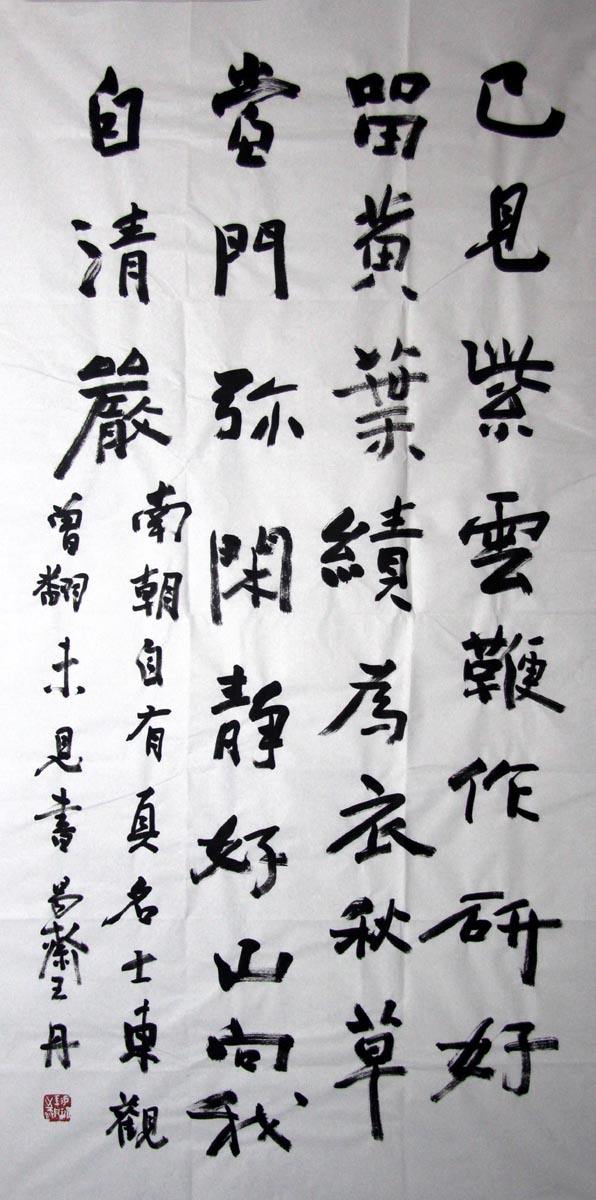 已見紫雲鞭作研好
留黄葉績為衣秋草
當門弥閑靜好山向我
自清嚴
南朝自有真名士東觀
曾翻未見書 齋王丹